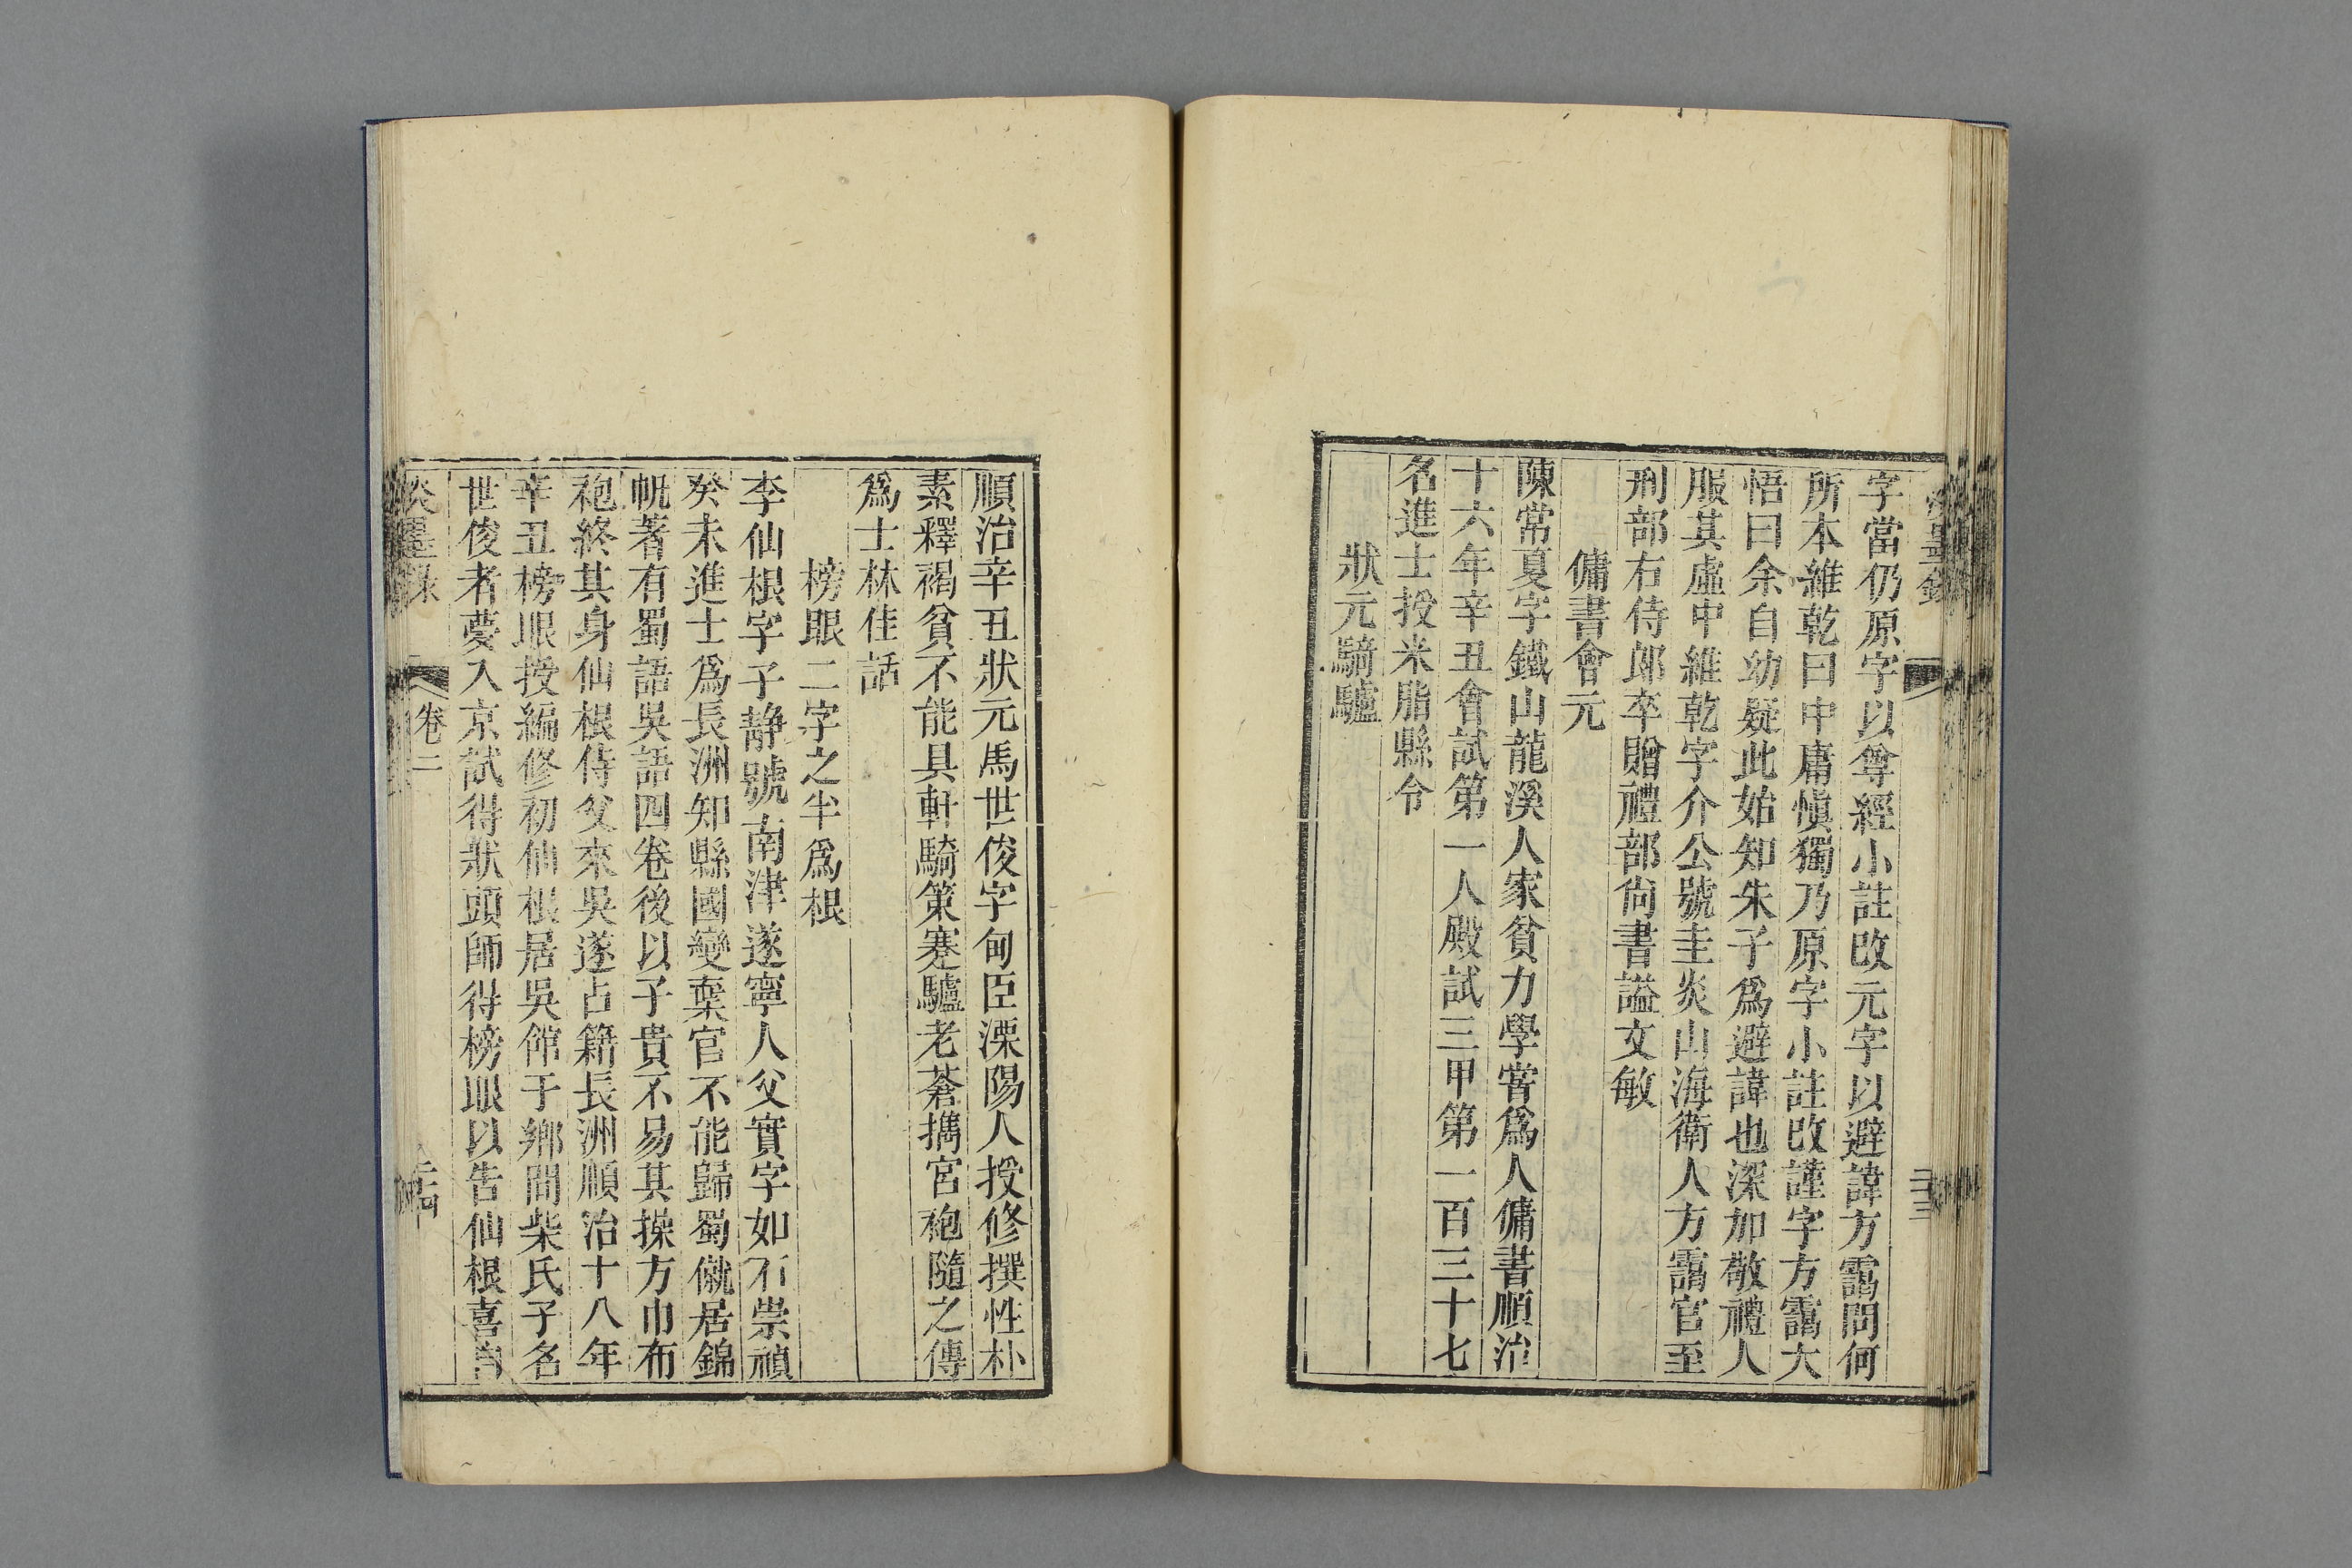 字當仍原字以尊經小註改元字以避諱方靄問何
所本維乾曰中庸愼獨乃原字小註改謹字方靄大
悟曰余自幼疑此始知朱子爲避諱也深加敬禮人
服其虛中維乾字介公號圭炎山海衛人方靄官至
刑部右侍郎卒贈禮部尙書謚文敏
傭書會元
陳常夏字鐵山龍溪人家貧力學嘗爲人傭書順治
十六年辛丑會試第一人殿試三甲第一百三十七
名進士授米脂縣令
狀元騎驢
順治辛丑狀元馬世俊字甸臣溧陽人授修撰性朴
素釋褐貧不能具軒騎策蹇驢老蒼擕宮袍隨之傳
爲士林佳話
榜眼二字之半爲根
李仙根字子静號南津遂寧人父實字如石崇禎
癸未進士爲長洲知縣國變棄官不能歸蜀僦居錦
帆著有蜀語吳語四卷後以子貴不易其操方巾布
袍終其身仙根侍父來吳遂占籍長洲順治十八年
辛丑榜眼授編修初仙根居吳館于鄉間柴氏子名
世俊者夢入京試得狀頭師得榜眼以告仙根喜自
淡墨録
卷二
二十四